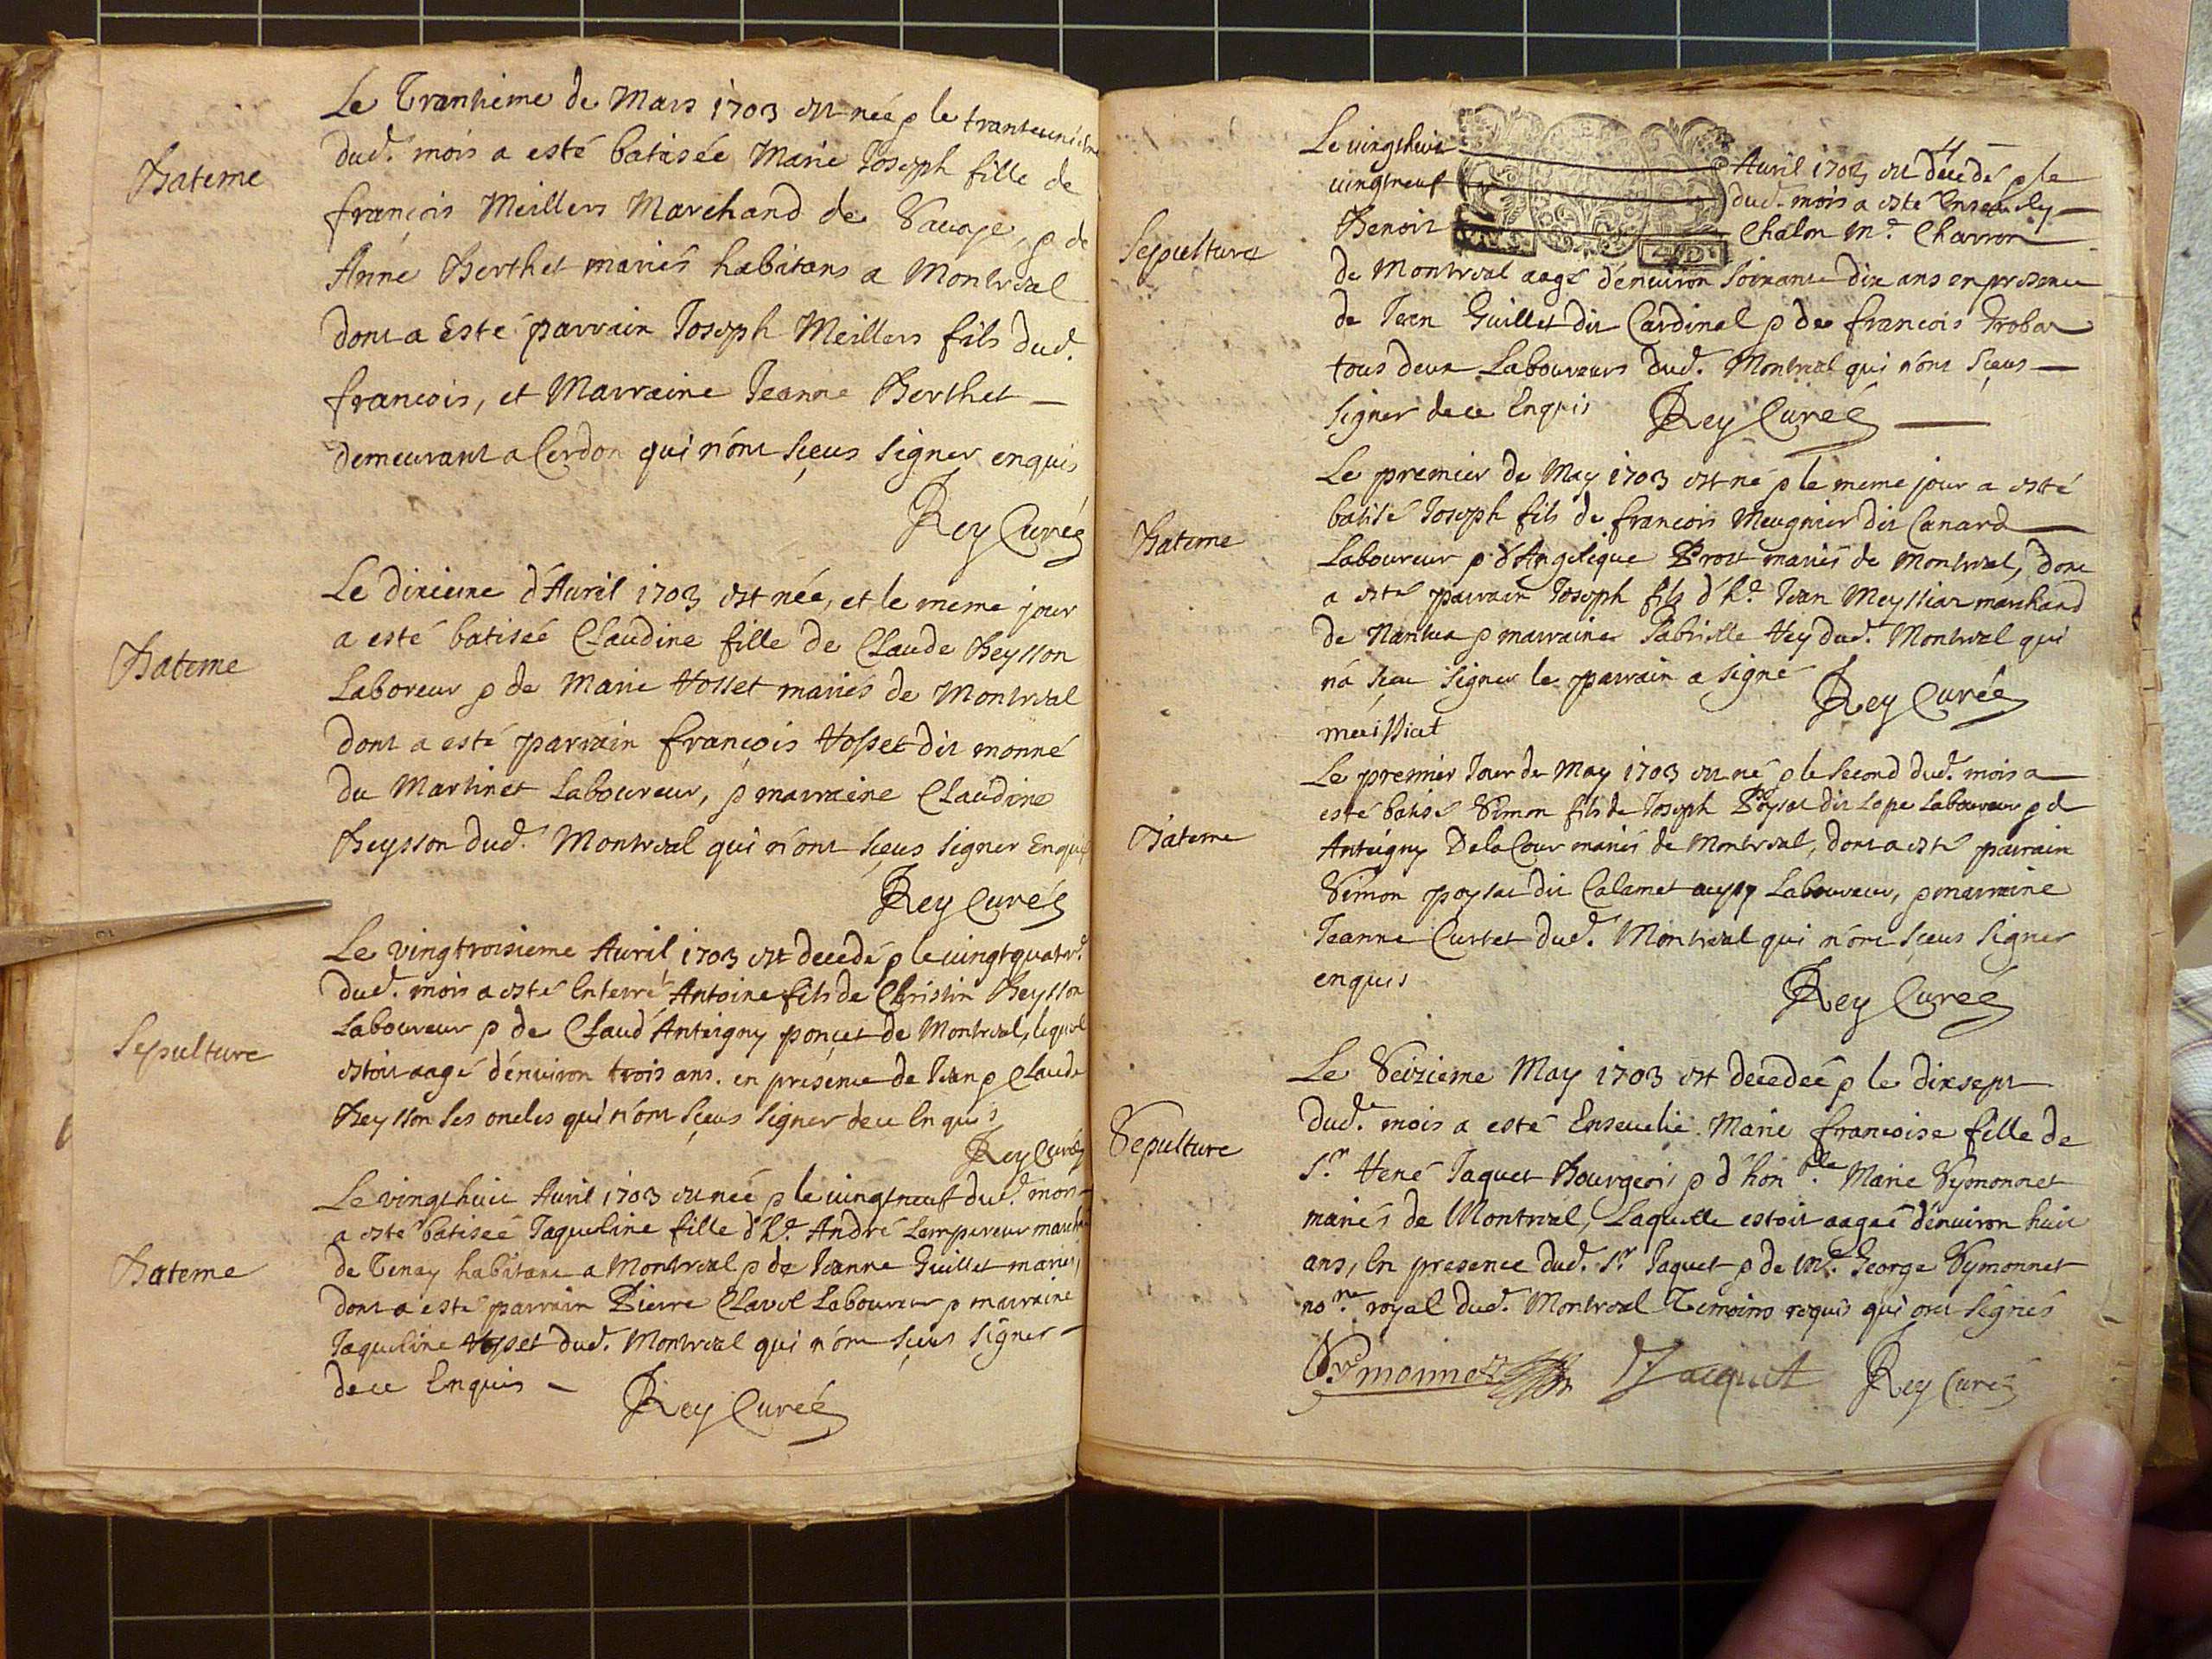 Bateme
Le Trantieme de Mars 1703 est née & le tranteunieme
dud. mois a esté batisée Marie Joseph fille de
françois Meillers Marchand de Savoye, & de
Anne Berthet mariés habitans a Montreal
dont a Esté parrain Joseph Meillers fils dud.
francois, et Marraine Jeanne Berthet —
demeurant a Cerdon qui n'ont sçeus signer enquis
Rey Curé
Bateme
Le dixieme d'Avril 1703 est née, et le meme jour
a esté batisée Claudine fille de Claude Beysson
Laboreur & de Marie Rosset mariés de Montreal
dont a esté parrain françois Rosset dit monné
du Martinet Laboureur, & marraine Claudine
Beysson dud. Montreal qui n'ont sçeus signer Enquis
Rey Curé
Sepulture
Le vingtroisieme Avril 1703 est decedé & le vingtquatre.
dud. mois a esté Enterré Antoine fils de Christin Beysson
Laboureur & de Claud'Anteigny ponçet de Montreal, lequel
estoit aagé d'environ trois ans. en presence de Jean & Claude
Beysson ses oncles qui n'ont sçeus signer dece Enquis
Rey Curé
Bateme
Le vingthuit Avril 1703 est née & le vingtneuf dud. mois
a esté batisée Jaqueline fille d'h. André Lempereur march
de Tenay habitant a Montreal & de Jeanne Guillet mariés,
dont a esté parrain Pierre Clavel Laboureur & marraine
Jaqueline Rosset dud. Montreal qui n'ont sçeus signer —
dece Enquis — Rey Curé
4
Sepulture
Le vingthuit Avril 1703 est decedé & le
vingtneuf dud. mois a esté Ensevely —
Benoit Chalon m. Charron
de Montreal aagé d'environ soixante dix ans en presence
de Jean Guillet dit Cardinal & de francois Trobat
tous deux Laboureurs dud. Montreal qui n'ont sçeus —
signer dece Enquis Rey Curé
Bateme
Le premier de May 1703 est né & le meme jour a esté
batisé Joseph fils de francois Meugnier dit Canard
Laboureur & d'Angelique Prost mariés de Montreal, dont
a esté parrain Joseph fils d'h. Jean Meyssiat marchand
de Nantua & marraine Gabrielle Rey dud. Montreal qui
n'a sçeu signer le parrain a signé
meissiat Rey Curé
Bateme
Le premier Jour de May 1703 est né & le second dud. mois a
esté batisé Simon fils de Joseph Poysat dit Lope Laboureur & d
Anteigny De la Cour mariés de Montreal, dont a esté parrain
Simon poysat dit Calamet aussy Laboureur, & marraine
Jeanne Curtet dud. Montreal qui n'ont sçeus signer
enquis Rey Curé
Sepulture
Le Seizieme May 1703 est decedeé & le dixsept
dud. mois a esté Ensevelie Marie francoise fille de
Sr. René Jaquet Bourgeois & d'honble. Marie Symonnet
mariés de Montreal, Laquelle estoit aageé d'environ huit
ans, En presence dud. Sr Jaquet & de Me. George Symonnet
nore. royal dud. Montreal Temoins requis qui ont signés
Symonnet Jacquet Rey Curé